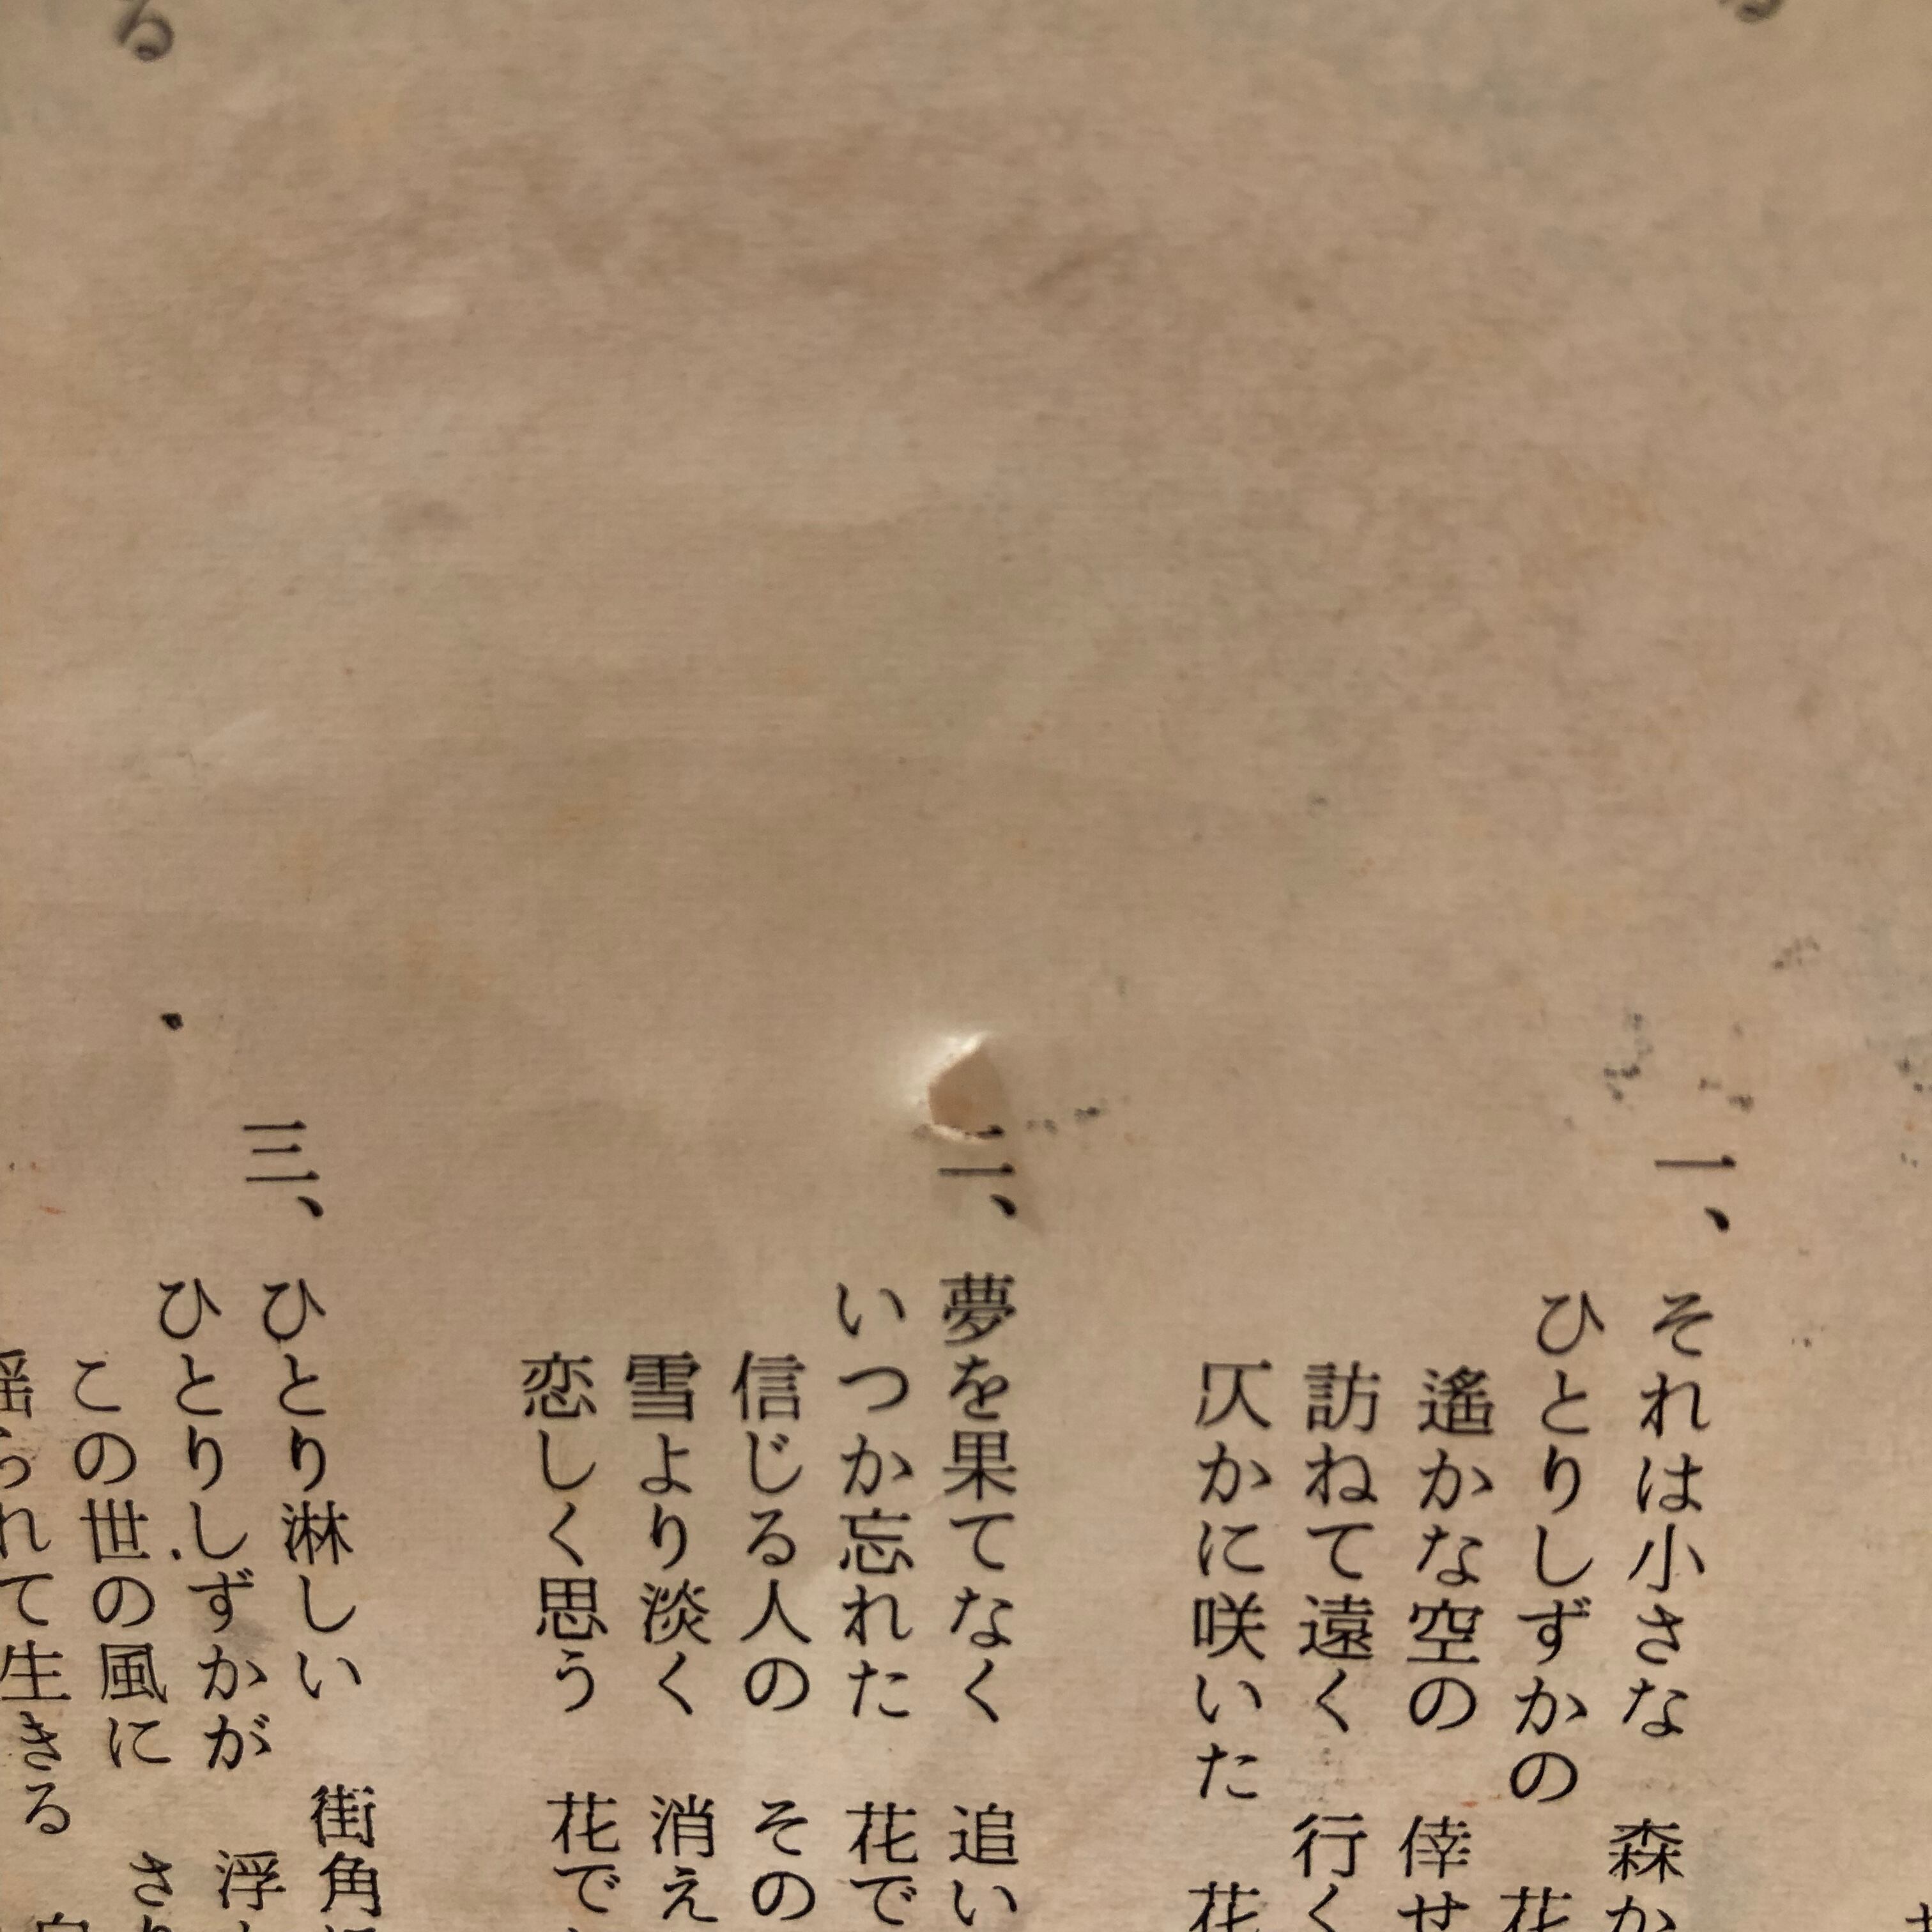 る
一、
それは小さな 森か
ひとりしずかの 花
遙かな空の 倖せ
訪ねて遠く 行く
仄かに咲いた 花
二、
夢を果てなく 追い
いつか忘れた 花で
信じる人の その
雪より淡く 消え
恋しく思う 花で
三、
ひとり淋しい 街角
ひとりしずかが 浮
この世の風に さ
揺られて生きる